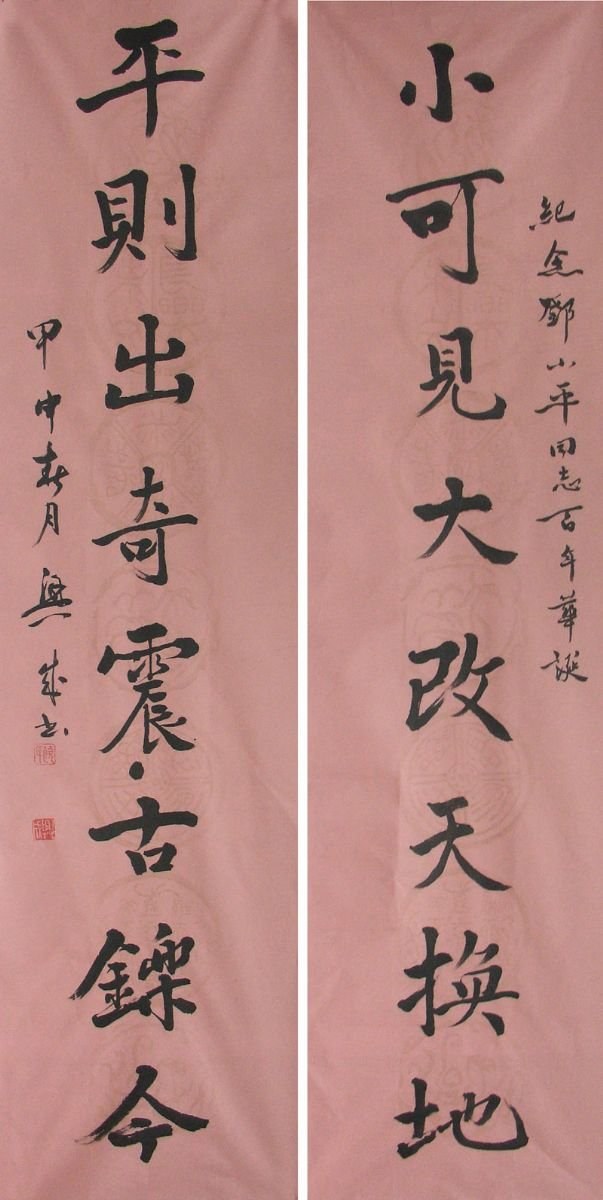 紀念鄧小平同志百年華誕
小可見大改天換地
平則出奇震·古鑠今
甲申春月 興成书